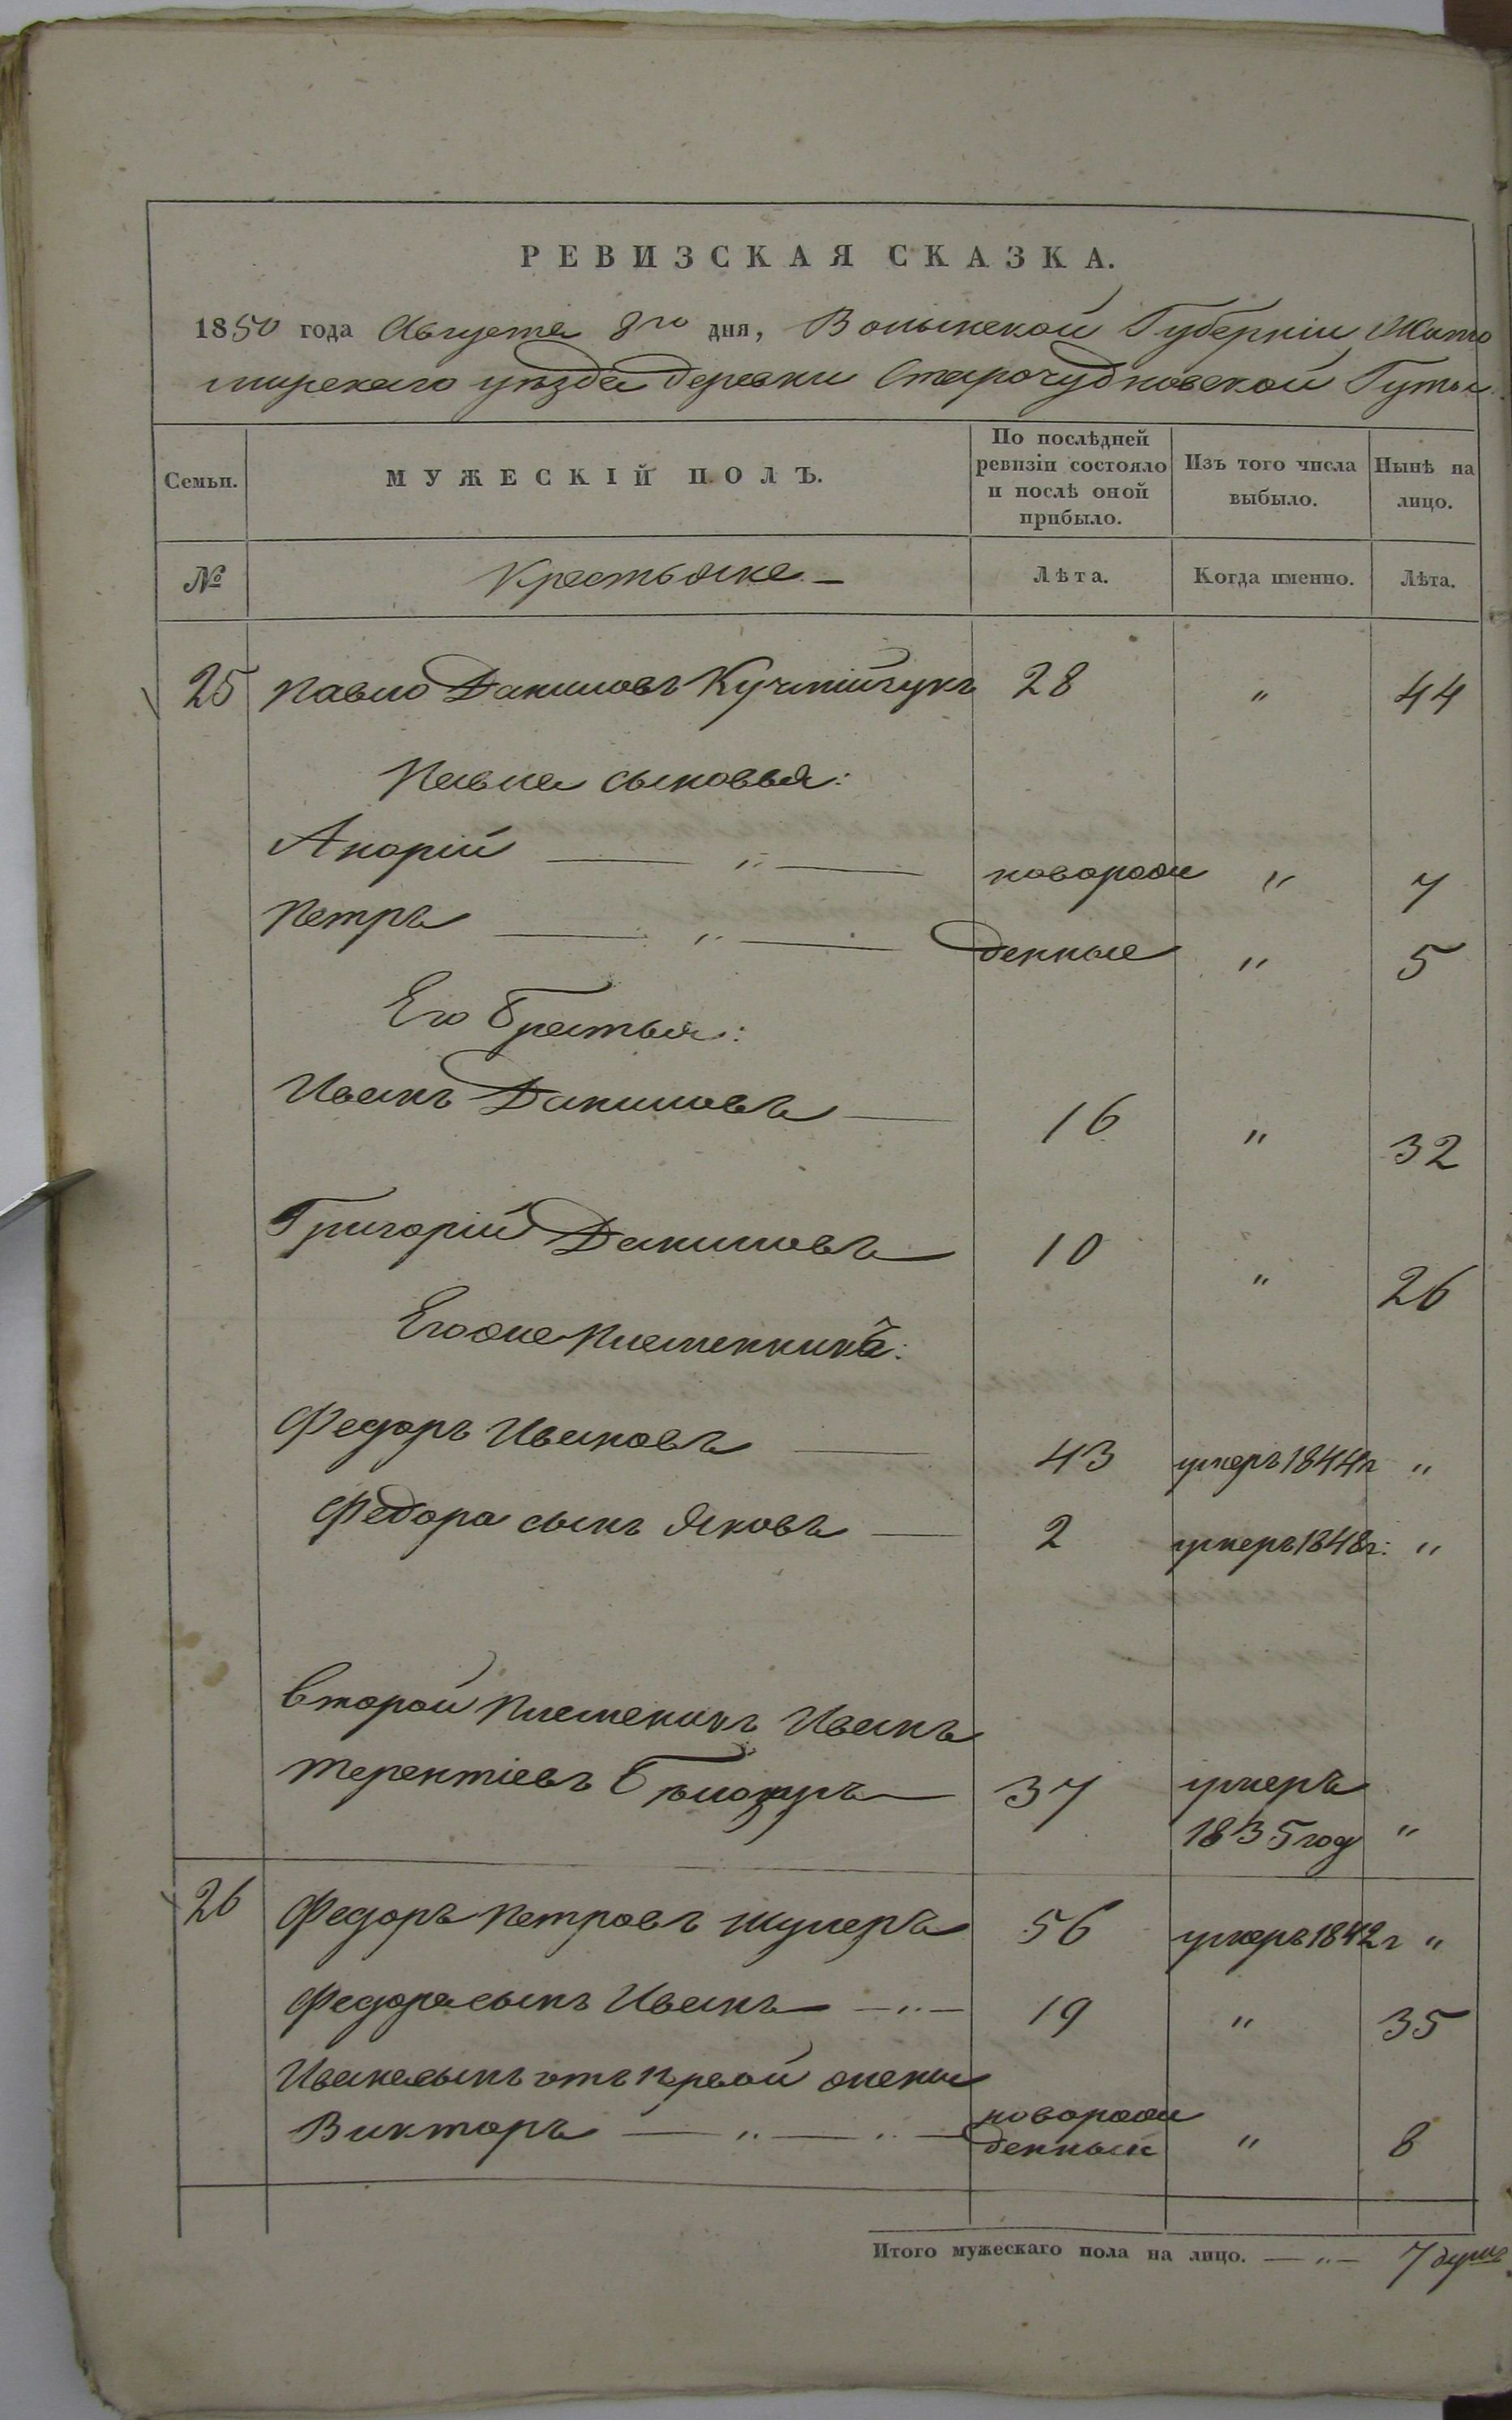 РЕВИЗСКАЯ СКАЗКА.
1850 года Августа 8го дня, Волынской Губерніи Жито
мирскаго уѣзда деревни Старочудновской Гуты
Семьи. МУЖЕСКІЙ ПОЛЪ. По послѣдней ревизіи состояло и послѣ оной прибыло. Изъ того числа выбыло. Нынѣ на лицо.
№ Крестьяне – Лѣта. Когда именно. Лѣта.
25 Павло Даниловъ 28 " 44
Павла сыновья:
Андрій — " — новорож " 7
Петръ — " — денные " 5
Его братья:
Иванъ Даниловъ — 16 " 32
Григорій Даниловъ 10 " 26
Егоже племенникъ:
Федоръ Ивановъ — 43 умеръ 1844г "
Федора сынъ Яковъ — 2 умеръ 1848г: "
Второй племеникъ Иванъ
Терентіевъ 37 умеръ
1835 год "
26 Федоръ Петровъ Шулеръ 56 умеръ 1842г "
Федора сынъ Иванъ — " — 19 " 35
Ивана сынъ отъ 1й жены
Викторъ — " — " — новорож
денный " 8
Итого мужескаго пола на лицо. — " — 7 душъ